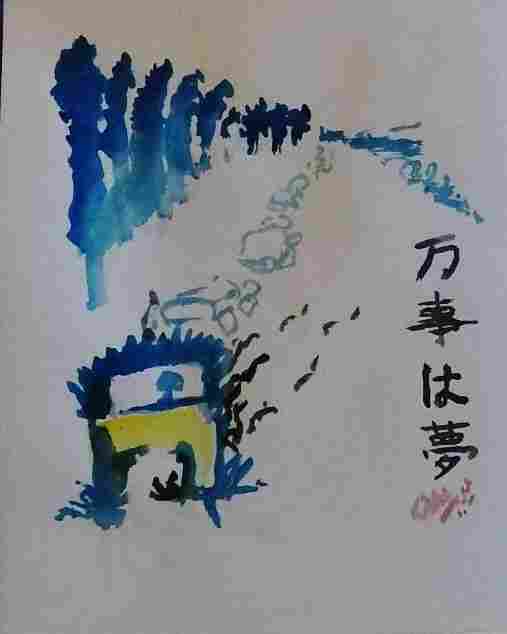 万事は夢